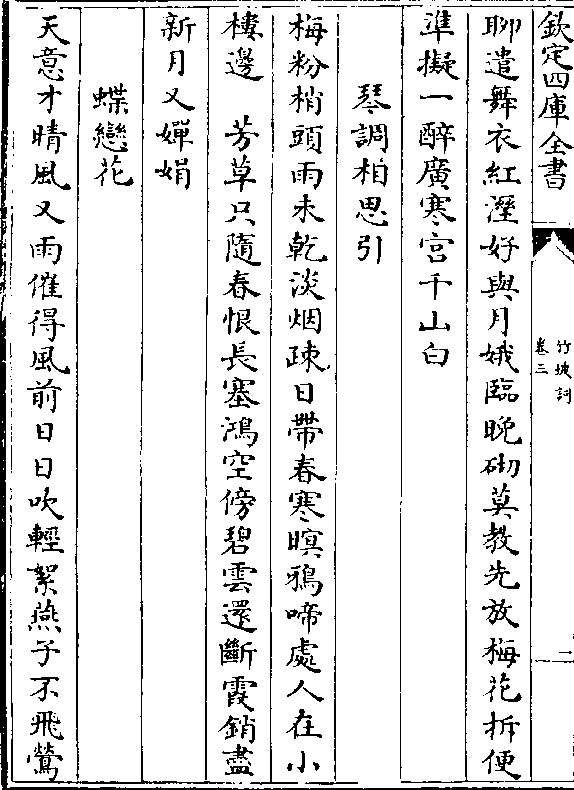 欽定四庫全書
竹坡詞
卷三
二
聊遣舞衣紅溼好與月娥臨晚砌莫教先放梅花拆便
準擬一醉廣寒宫千山白
琴調相思引
梅粉梢頭雨未乾淡烟疎日帶春寒暝鴉啼處人在小
樓邊　芳草只隨春恨長塞鴻空傍碧雲還斷霞銷盡
新月又嬋娟
蝶戀花
天意才晴風又雨催得風前日日吹輕絮燕子不飛鶯